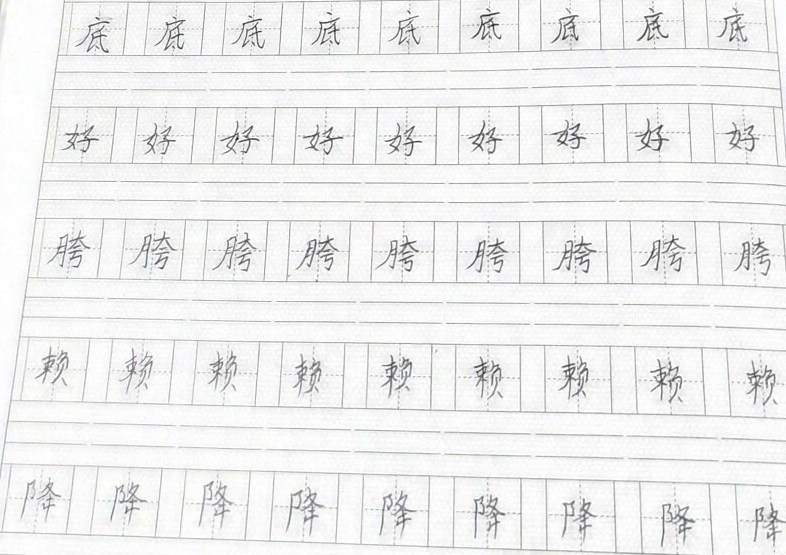 底 底 底 底 底 底 底 底 底
好 好 好 好 好 好 好 好 好
胯 胯 胯 胯 胯 胯 胯 胯 胯
赖 赖 赖 赖 赖 赖 赖 赖 赖
降 降 降 降 降 降 降 降 降